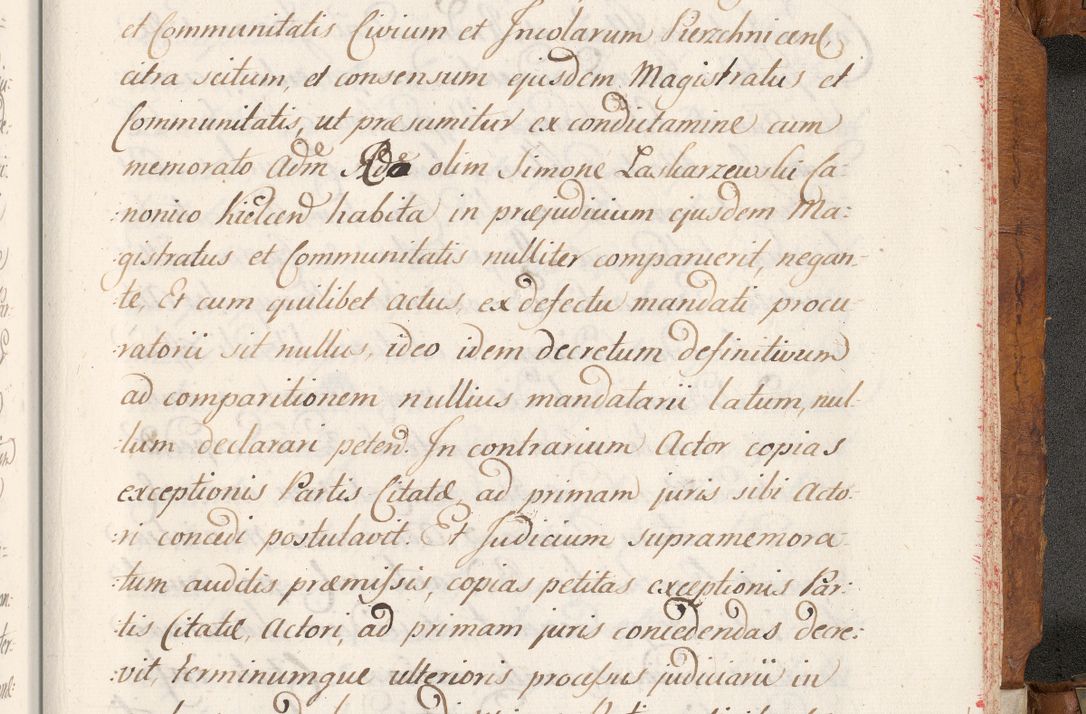 et Communitatis Civium et Incolarum Pierzchnicens,
citra scitum, et consensum ejusdem Magistratus et
Communitatis, ut præsumitur ex condictamine cum
memorato Adm Rdo olim Simone Laskarzewski Ca-
:nonico Kielcen habita in præjudicium ejusdem Ma:
gistratus et Communitatis nulliter comparuerit, negan-
te, Et cum quilibet actus, ex defectu mandati procu-
ratorii sit nullus, ideo idem decretum definitivum
ad comparitionem nullius mandatarii latum, nul-
lum declarari peten. In contrarium Actor copias
exceptionis Partis Citatæ, ad primam juris sibi Acto-
ri concedi postulavit. Et Judicium supramemora-
tum auditis præmissis, copias petitas exceptionis Par:
:tis Citatæ, Actori, ad primam juris concedendas decre:
:vit, terminumque ulterioris processus judiciarii in